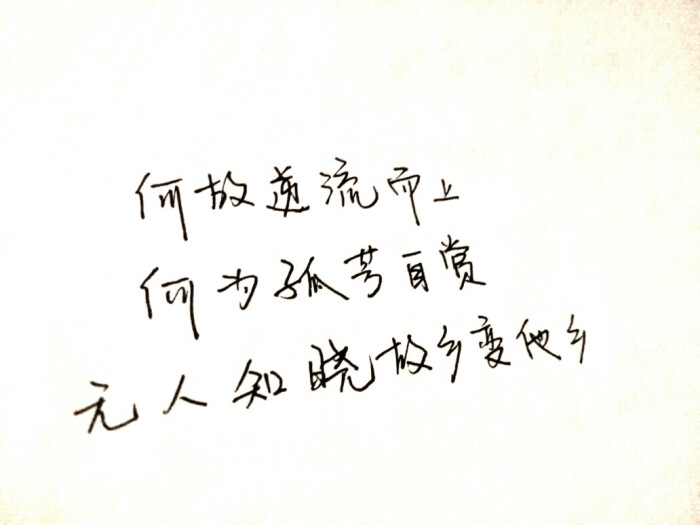 何故逆流而上
何为孤芳自赏
无人知晓故乡变他乡